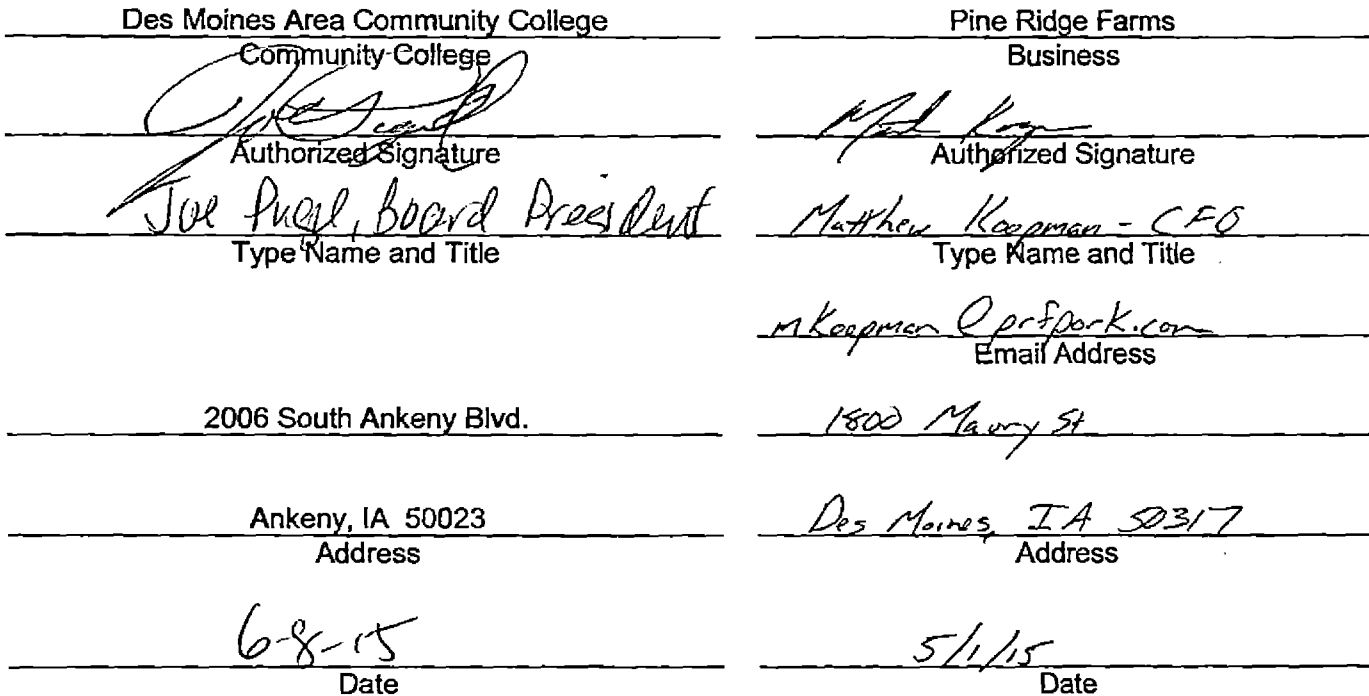 Des Moines Area Community College
Community College
Authorized Signature
Joe Pugel, Board President
Type Name and Title
2006 South Ankeny Blvd.
Ankeny, IA 50023
Address
6-8-15
Date
Pine Ridge Farms
Business
Authorized Signature
Matthew Koopman - CFO
Type Name and Title
mkoopman@prfpork.com
Email Address
1800 Maury St
Des Moines, IA 50317
Address
5/1/15
Date